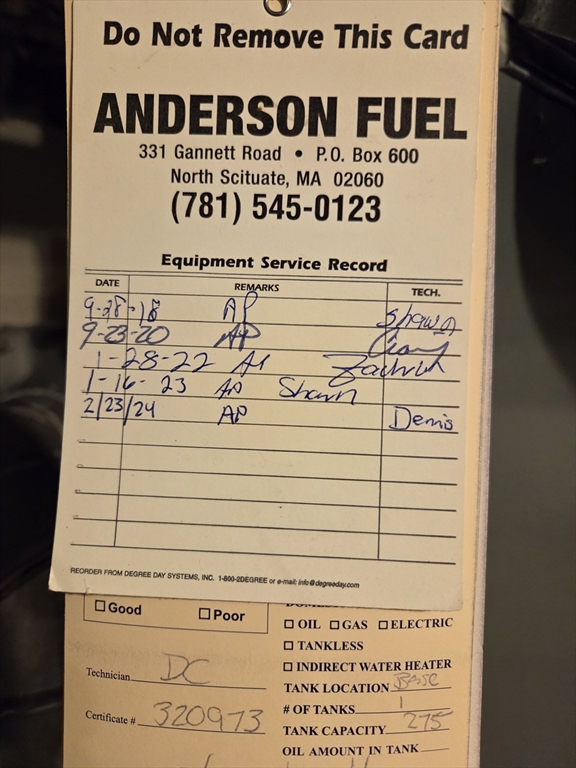 Do Not Remove This Card
ANDERSON FUEL
331 Gannett Road • P.O. Box 600
North Scituate, MA 02060
(781) 545-0123
Equipment Service Record
DATE REMARKS TECH.
9-28-18 AP Shawn
9-23-20 AP
1-28-22
1-16-23 AP Shawn
2/23/24 AP Dennis
REORDER FROM DEGREE DAY SYSTEMS, INC. 1-800-2DEGREE or e-mail: info@degreeday.com
☐ Good ☐ Poor
Technician DC
Certificate # 320973
☐ OIL ☐ GAS ☐ ELECTRIC
☐ TANKLESS
☐ INDIRECT WATER HEATER
TANK LOCATION Base
# OF TANKS 1
TANK CAPACITY 275
OIL AMOUNT IN TANK